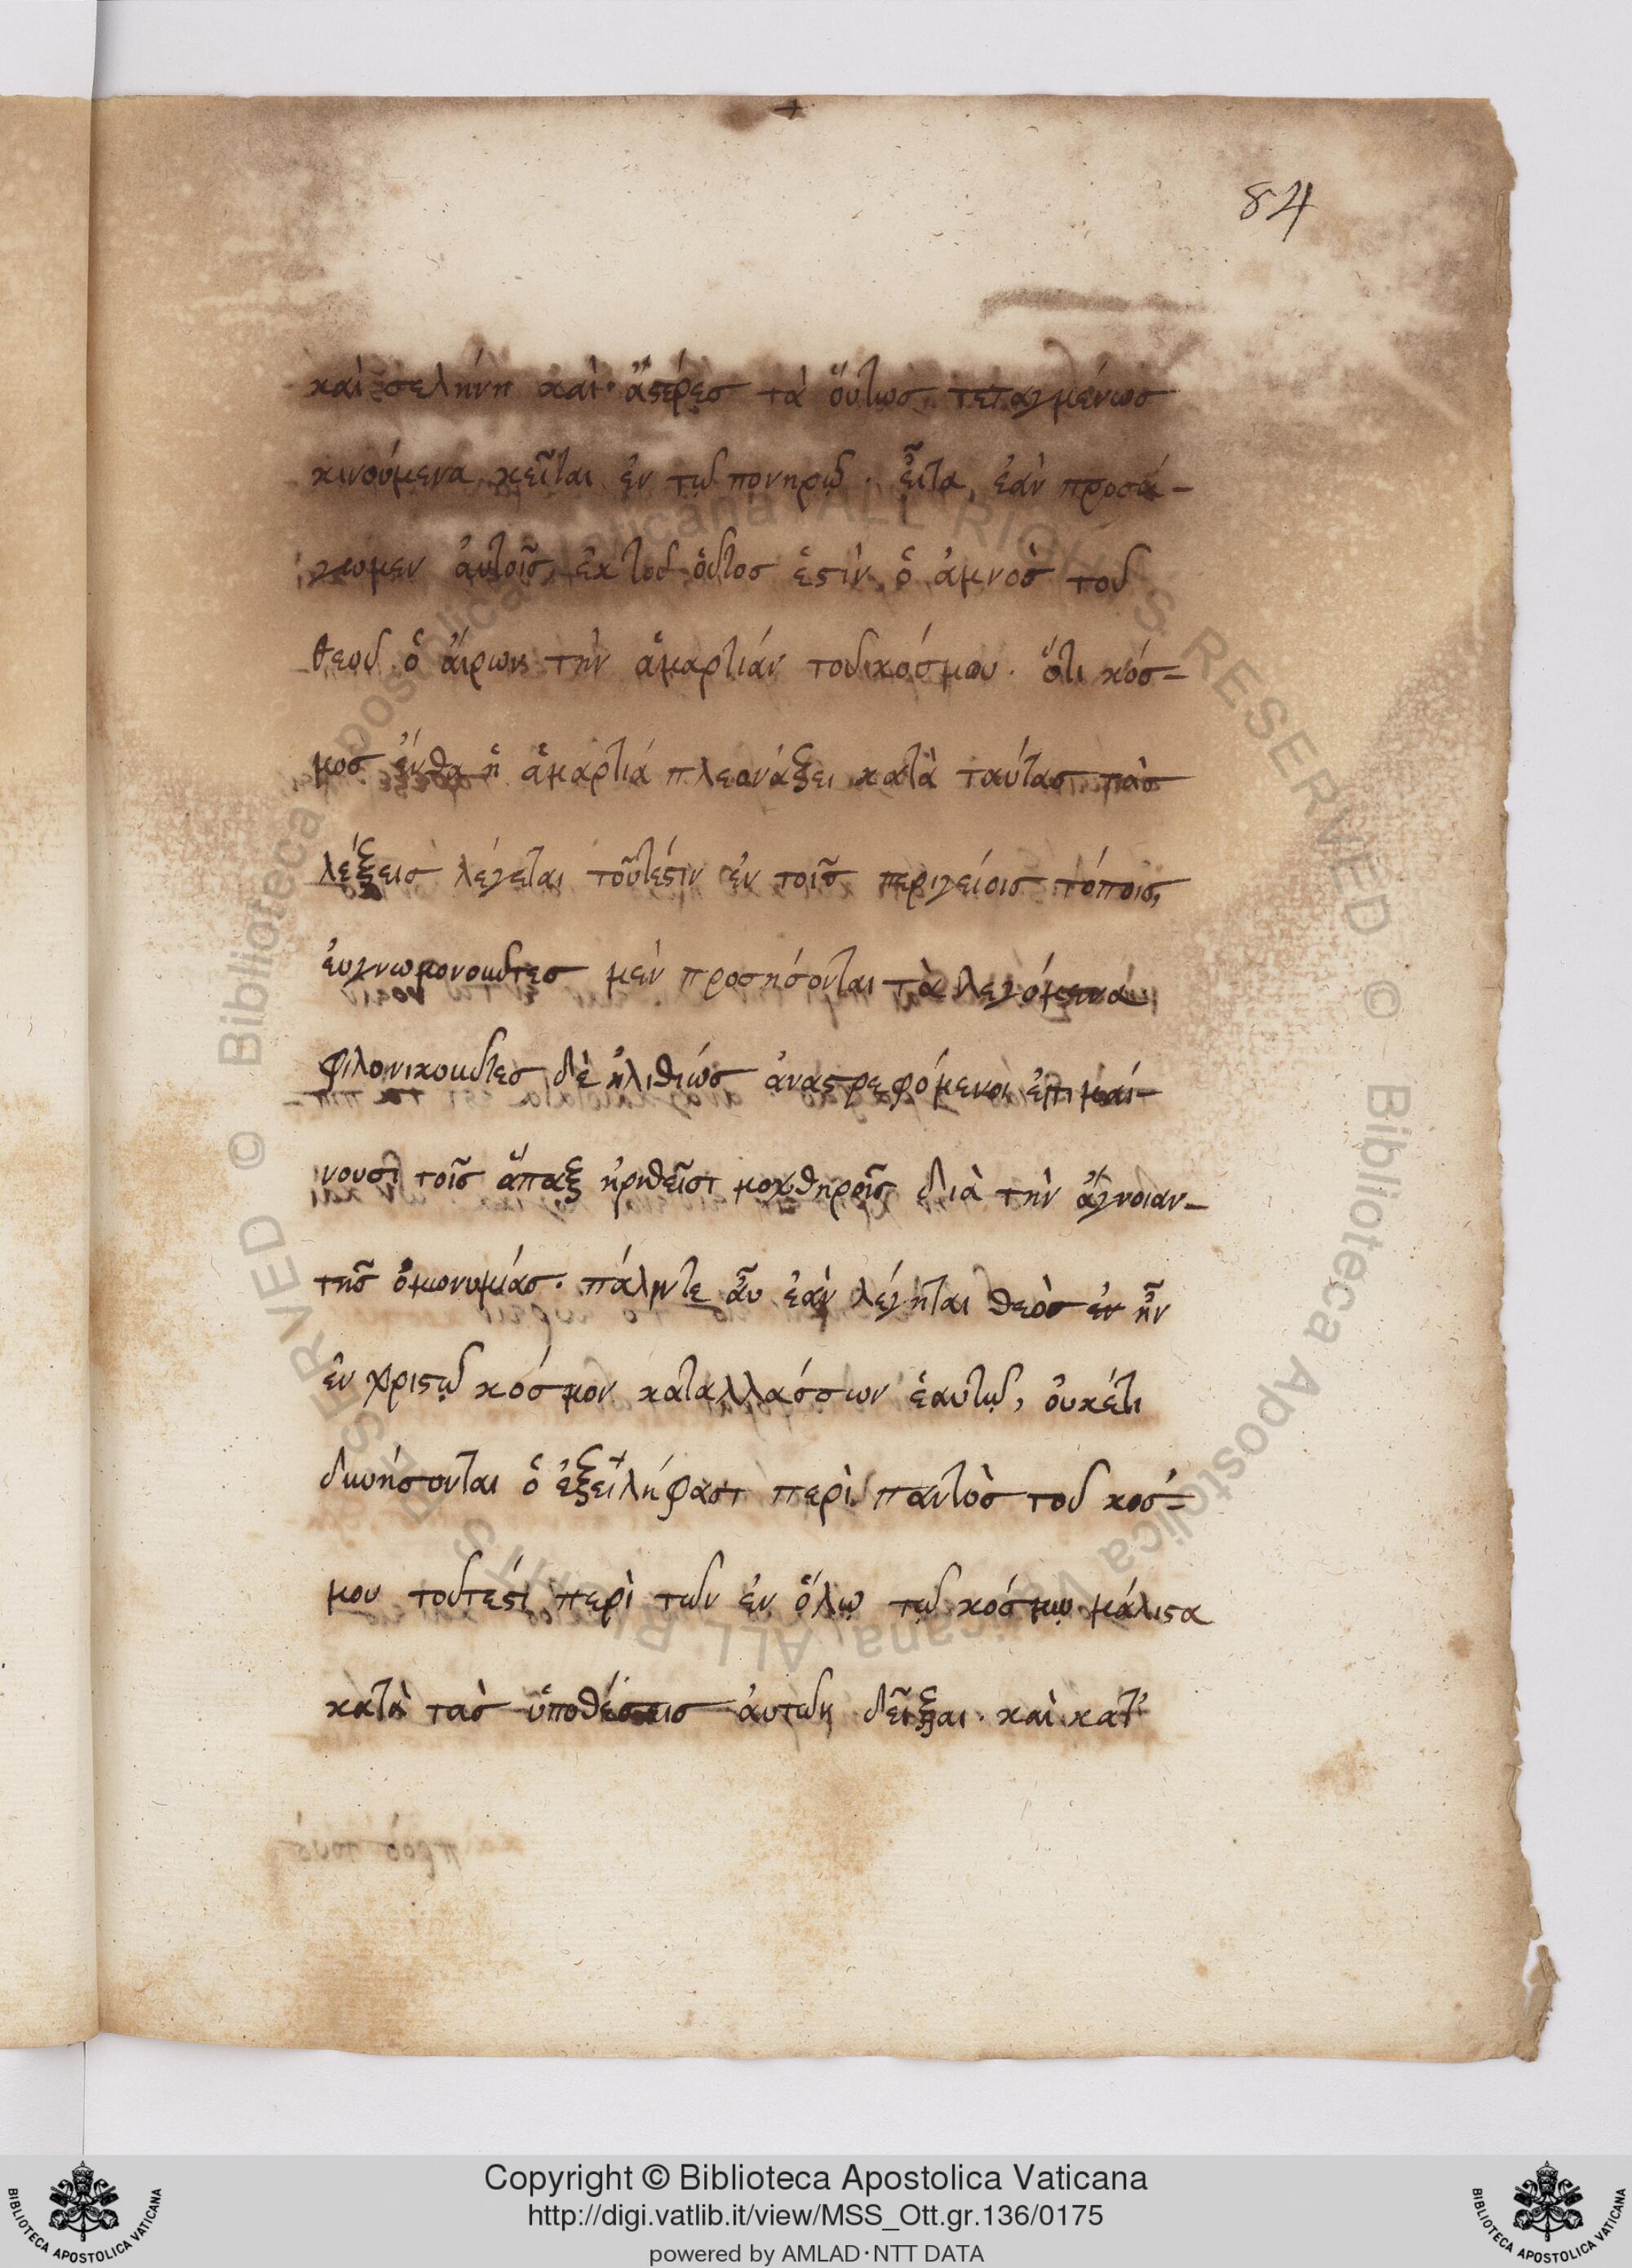 84
καὶ σελήνη καὶ ἄστέρεσ τὰ ὅυτωσ τεταγμένωσ
κινούμενα κεῖται ἐν τῷ πονηρῷ. εἶτα, ἐὰν προσά-
γωμεν ἀυτοῖσ, ἐκ τοῦ ὁῦτοσ ἐστὶν ὁ ἀμνὸσ τοῦ
θεοῦ ὁ ἄιρων τὴν ἁμαρτιάν τοῦ κόσμου. ὅτι κόσ=
μοσ ἔνθα ἡ ἁμαρτιά πλεονάζει κατὰ ταύτασ τὰσ
λέξεισ λέγεται τοῦτέστιν ἐν τοῖσ περιγείοισ τόποισ,
ἐυγνωμονοῦντεσ μὲν προσήσονται τὰ λεγόμενα
φιλονικοῦντεσ δὲ ἠλιθίωσ ἀναστρεφόμενοι ἐπιμαί-
νουσι τοῖσ ἅπαξ μοχθηροῖσ διὰ τὴν ἄγνοιαν-
τῆσ ὁμονυμίασ. πάλιν τε ἆυ ἐὰν λέγηται θεὸσ ἐν ἦν
ἐν χριστῷ κόσμον καταλλάσσων ἑαυτῷ, ὀυκέτι
δυνήσονται ὁ ἐξειλήφασι περὶ παντὸσ τοῦ κόσ=
μου τουτέστι περὶ τῶν ἐν ὅλῳ τῷ κόσμῳ μάλιστα
κατὰ τὰσ ὑποθέσεισ ἀυτῶν δεῖξαι. καὶ κατ'
Copyright © Biblioteca Apostolica Vaticana
http://digi.vatlib.it/view/MSS_Ott.gr.136/0175
powered by AMLAD·NTT DATA
BIBLIOTECA APOSTOLICA VATICANA
BIBLIOTECA APOSTOLICA VATICANA
© Biblioteca Apostolica Vaticana ALL RIGHTS RESERVED © Biblioteca Apostolica Vaticana ALL RIGHTS RESERVED